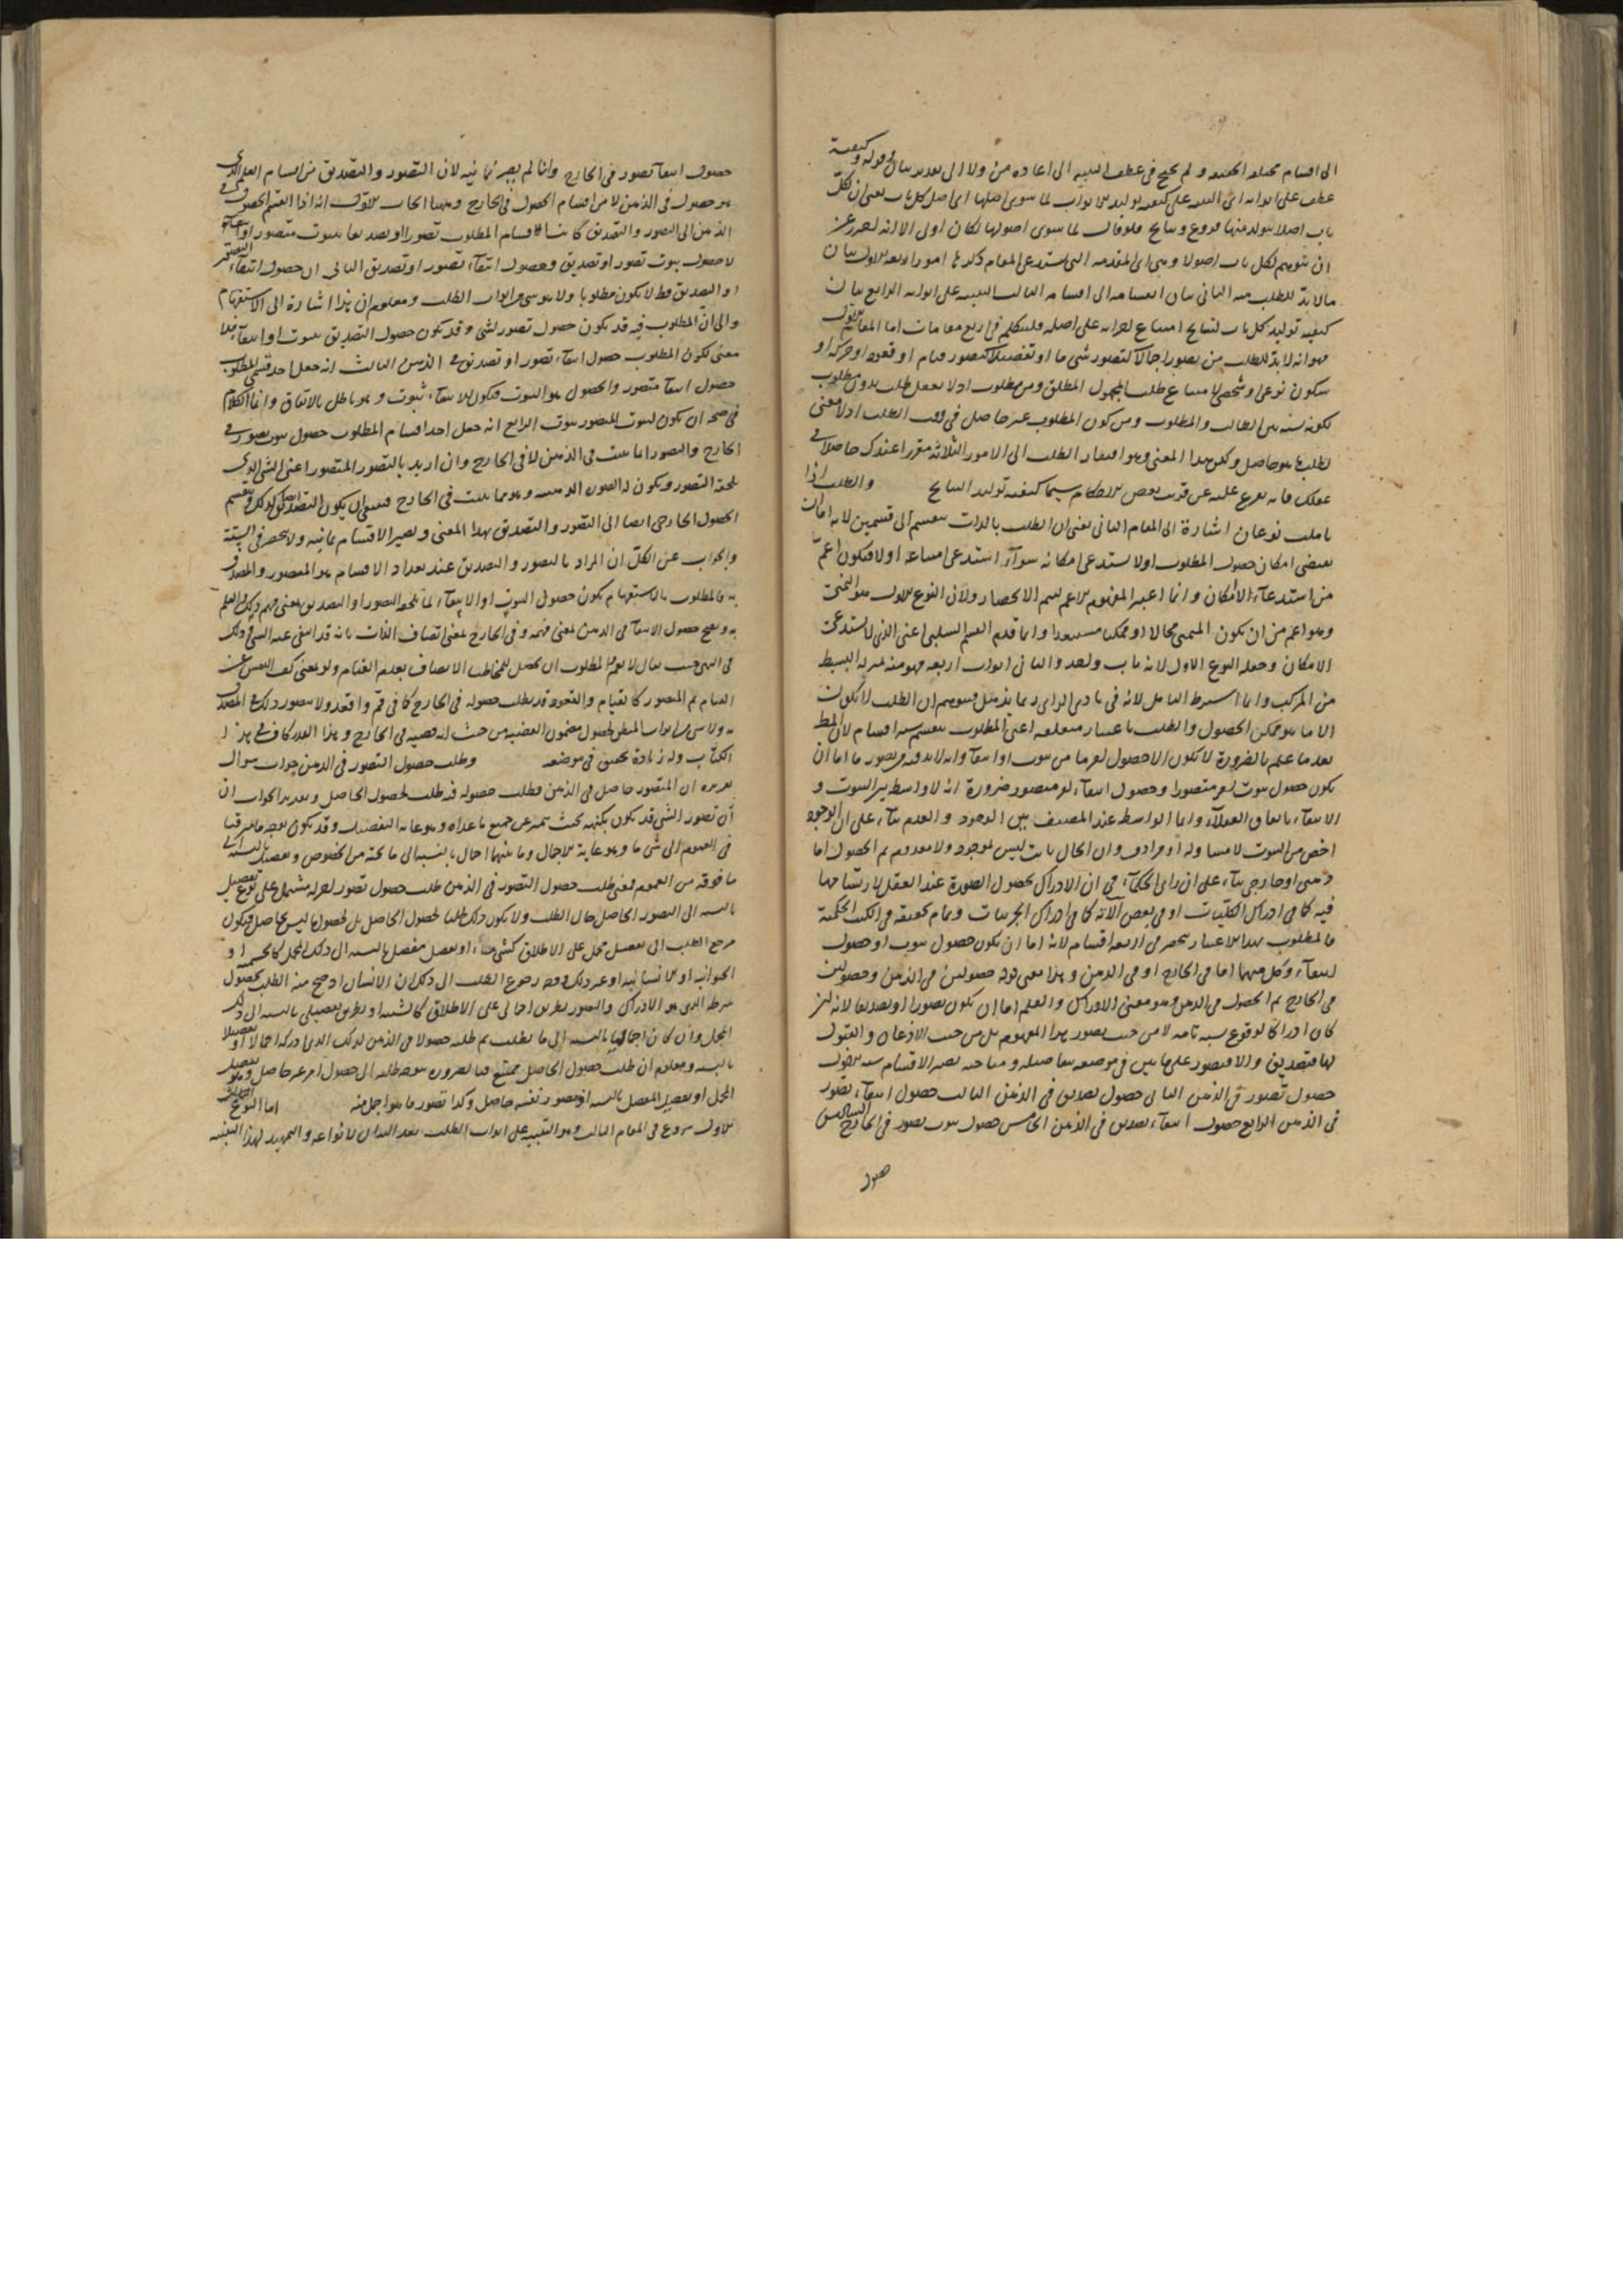 الى اقسام مختلفة الحقيقة ولم يحتج في عطف التنبيه الى اعادة من ولا الى تقدير بيان وقوله وكيفية
عطف على ابوابه اى التنبيه على كيفية توليد الابواب لما سوى اصلها اى اصل كل باب يعنى ان لكل
باب اصلا يتولد منها فروع ونتايج فلو قال لما سوى اصولها لكان اولى الا انه احترز عن
ان يتوهم لكل باب اصولا وهى اى المقدمة التى يستدعى المقام ذكرها امور اربعة الاول بيان
ما لا بد للطلب منه الثانى بيان انقسامه الى اقسامه الثالث التنبيه على ابوابه الرابع بيان
كيفية توليد كل باب لنتايج امتناع اجرائه على اصله فلنتكلم في اربع مقامات اما المقام الاول
فهو انه لا بد للطلب من تصور اجمالا كتصور شى ما او تفصيلا كتصور قيام او قعود او حركة او
سكون نوعى او شخصى لامتناع طلب المجهول المطلق ومن مطلوب اذ لا يعقل طلب بدون مطلوب
لكونه نسبة بين الطالب والمطلوب ومن كون المطلوب غير حاصل في وقت الطلب اذ لا معنى
لطلب ما هو حاصل وليكن هذا المعنى وهو افتقار الطلب الى الامور الثلاثة مقررا عندك حاصلا في
عقلك فانه يتفرع عليه عن قريب بعض الاحكام سيما كيفية توليد النتايج والطلب اذا
تاملت نوعان اشارة الى المقام الثانى يعنى ان الطلب بالذات ينقسم الى قسمين لانه اما ان
يقتضى امكان حصول المطلوب او لا يستدعى امكانه سواء استدعى امتناعه او لا فيكون اعم
من استدعاء اللاامكان وانما اعتبر المفهوم الاعم ليتم الانحصار ولان النوع الاول هو التمنى
وهو اعم من ان يكون المتمنى محالا او ممكنا مستبعدا وانما قدم القسم السلبى اعنى الذى لا يستدعى
الامكان وجعله النوع الاول لانه باب واحد والثانى ابواب اربعة فهو منه بمنزلة البسيط
من المركب وانما اشترط التامل لانه في بادى الراى ربما يذهل فيتوهم ان الطلب لا يكون
الا ما هو ممكن الحصول والطلب باعتبار متعلقه اعنى المطلوب ينقسم ستة اقسام لان المط
بعد ما علم بالضرورة لا يكون الا حصول امر ما من ثبوت او انتفاء وانه لا بد فيه من تصور ما اما ان
يكون حصول ثبوت امر متصور او حصول انتفاء امر متصور ضرورة انه لا واسطة بين الثبوت و
الانتفاء باتفاق العقلاء وانما الواسطة عند المصنف بين الوجود والعدم بناء على ان الوجود
اخص من الثبوت لا مساو له او مرادف وان الحال ثابت ليس بموجود ولا معدوم ثم الحصول اما
ذهنى او خارجى بناء على ان راى الحكماء في ان الادراك بحصول الصورة عند العقل بارتسامها
فيه كما في ادراك الكليات او في بعض آلاته كما في ادراك الجزئيات وتمام تحقيقه في الكتب الحكمية
فالمطلوب بهذا الاعتبار ينحصر في اربعة اقسام لانه اما ان يكون حصول ثبوت او حصول
انتفاء وكل منهما اما في الخارج او في الذهن وهذا معنى قوله حصولين في الذهن وحصولين
في الخارج ثم الحصول في الذهن وهو معنى الادراك والعلم اما ان يكون تصورا او تصديقا لانه ان
كان ادراكا لوقوع نسبة تامة لا من حيث تصور هذا المفهوم بل من حيث الاذعان والقبول
لها فتصديق والا فتصور على ما بين في موضعه تفاصيله ومباحثه فتصير الاقسام ستة الاول
حصول تصور في الذهن الثانى حصول تصديق في الذهن الثالث حصول انتفاء تصور
في الذهن الرابع حصول انتفاء تصديق في الذهن الخامس حصول ثبوت تصور في الخارج السادس
حصول
حصول انتفاء تصور في الخارج وانما لم يصر ثمانية لان التصور والتصديق من اقسام العلم الذى
هو حصول في الذهن لا من اقسام الحصول في الخارج وههنا ابحاث الاول انه اذا انقسم الحصول في
الذهن الى التصور والتصديق كانت اقسام المطلوب تصورا او تصديقا بثبوت متصور او انتفائه
لا حصول ثبوت تصور او تصديق وحصول انتفاء تصور او تصديق الثانى ان حصول انتفاء التصور
او التصديق قط لا يكون مطلوبا ولا هو شى من ابواب الطلب ومعلوم ان هذا اشارة الى الاستفهام
والى ان المطلوب فيه قد يكون حصول تصور لشى وقد يكون حصول التصديق بثبوت او انتفاء فلا
معنى لكون المطلوب حصول انتفاء تصور او تصديق في الذهن الثالث انه جعل احد قسمى المطلوب
حصول انتفاء متصور والحصول هو الثبوت فيكون للانتفاء ثبوت وهو باطل بالاتفاق وانما الكلام
في صحة ان يكون لثبوت المتصور ثبوت الرابع انه جعل احد اقسام المطلوب حصول ثبوت تصور في
الخارج والتصور انما يثبت في الذهن لا في الخارج وان اريد بالتصور المتصور اعنى الشى الذى
يلحقه التصور ويكون له الصورة الذهنية وهو مما يثبت في الخارج فينبغى ان يكون التصديق ايضا كذلك وينقسم
الحصول الخارجى ايضا الى التصور والتصديق بهذا المعنى ويصير الاقسام ثمانية ولا ينحصر في الستة
والجواب عن الكل ان المراد بالتصور والتصديق عند تعداد الاقسام هو المتصور والمصدق
به فالمطلوب بالاستفهام يكون حصول الثبوت او الانتفاء لما يلحقه التصور او التصديق بمعنى فهم ذلك والعلم
به ويصح حصول الانتفاء في الذهن بمعنى فهمه وفي الخارج بمعنى اتصاف الذات بانه قد انتفى عنه الشى وذلك
في النهى حيث يقال لا يقم المطلوب ان يحصل للمخاطب الاتصاف بعدم القيام ولو بمعنى كف النفس عن
القيام ثم المتصور كالقيام والقعود قد يطلب حصوله في الخارج كما في قم واقعد ولا يتصور ذلك في المصدق
به ولا شى من ابواب الطلب لحصول مضمون القضية من حيث انه قضية في الخارج وهذا القدر كاف في هذا
الكتاب وله زيادة تحقيق في موضعه وطلب حصول التصور في الذهن جواب سوال
تقريره ان المتصور حاصل في الذهن فطلب حصوله فيه طلب لحصول الحاصل وتقرير الجواب ان
ان تصور الشى قد يكون بكنهه بحيث يتميز عن جميع ما عداه وهو غاية التفصيل وقد يكون بوجه ما مترقيا
في العموم الى شى ما وهو غاية الاجمال وما بينهما اجمال بالنسبة الى ما تحته من الخصوص وتفصيل بالنسبة الى
ما فوقه من العموم فمعنى طلب حصول التصور في الذهن طلب حصول تصور اخر له مشتمل على نوع تفصيل
بالنسبة الى التصور الحاصل حال الطلب ولا يكون ذلك طلبا لحصول الحاصل بل لحصول ما ليس بحاصل فيكون
مرجع الطلب الى تفصيل مجمل على الاطلاق كشى ما او تفصيل مفصل بالنسبة الى ذلك المجمل كالجسمية او
الحيوانية او الانسانية او غير ذلك ووجه رجوع الطلب الى ذلك ان الانسان اذ صح منه الطلب بحصول
شرطه الذى هو الادراك والتصور بطريق اجمالى على الاطلاق كالشيئية او بطريق تفصيلى بالنسبة الى ذلك
المجمل وان كان اجماليا بالنسبة الى ما يطلب ثم طلب حصولا في الذهن لذلك الذى ادركه اجمالا او تفصيلا
بالنسبة ومعلوم ان طلب حصول الحاصل ممتنع فبالضرورة يتوجه طلبه الى حصول امر غير حاصل وهو تفصيل
المجمل او تفصيل المفصل بالنسبة اذ تصور نفسه حاصل وكذا تصور ما هو اجمل منه اما النوع
الاول شروع في المقام الثالث وهو التنبيه على ابواب الطلب بعد البيان لانواعه والتمهيد لهذا التنبيه